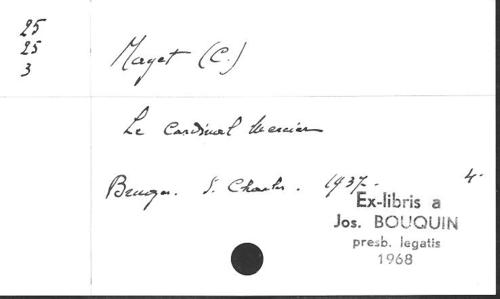 25
25
3
Mayet (C.)
Le Cardinal Mercier
Bruges. S. Charles. 1937. 4.
Ex-libris a
Jos. BOUQUIN
presb. legatis
1968